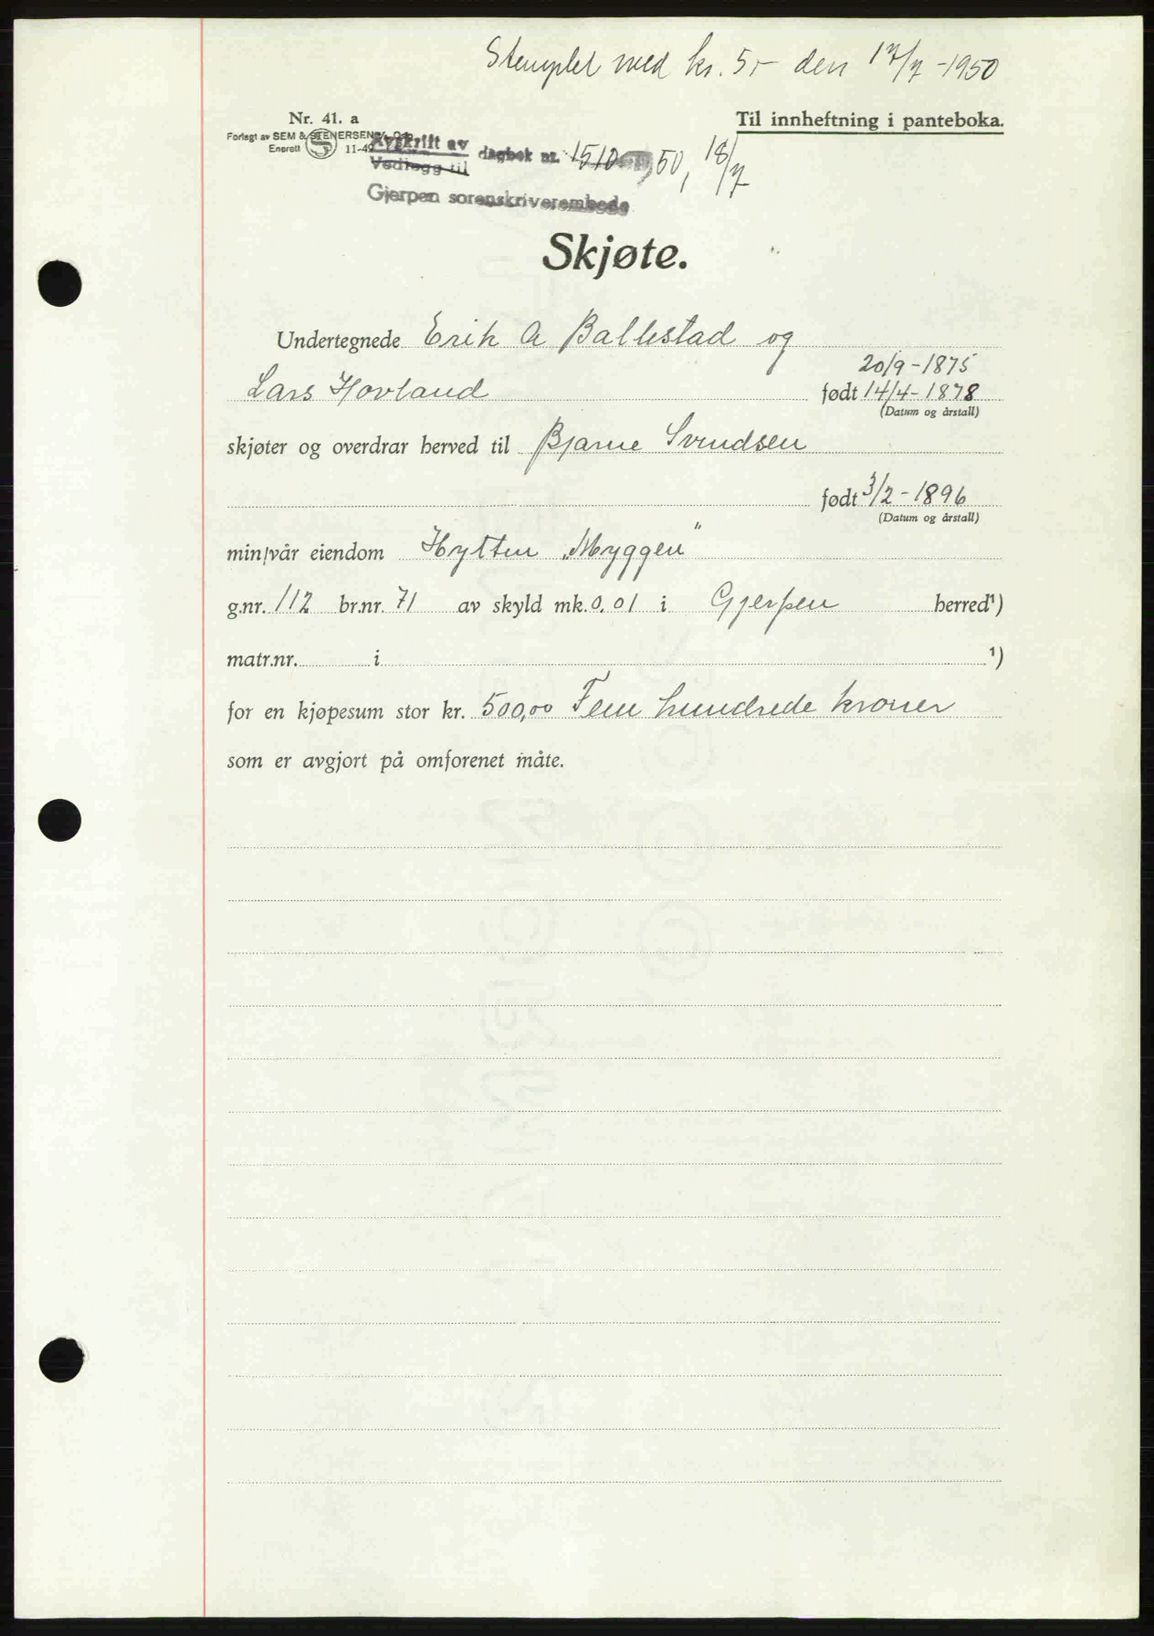 Stemplet med kr. 5,- den 17/7 -1950
Nr. 41. a
Til innheftning i panteboka.
Forlagt av SEM & STENERSEN A/S, Oslo
Enerett 11-49
Avskrift av
Vedlegg til
dagbok nr. 1510 50, 18/7
Gjerpen sorenskriverembede
Skjøte.
Undertegnede Erik A Ballestad og
20/9-1875
Lars Hovland født 14/4-1878
(Datum og årstall)
skjøter og overdrar herved til Bjarne Svendsen
født 3/2-1896
(Datum og årstall)
min/vår eiendom Hytten „Myggen"
g.nr. 112 br.nr. 71 av skyld mk. 0,01 i Gjerpen herred¹)
matr.nr. i ¹)
for en kjøpesum stor kr. 500,00 Fem hundrede kroner
som er avgjort på omforenet måte.